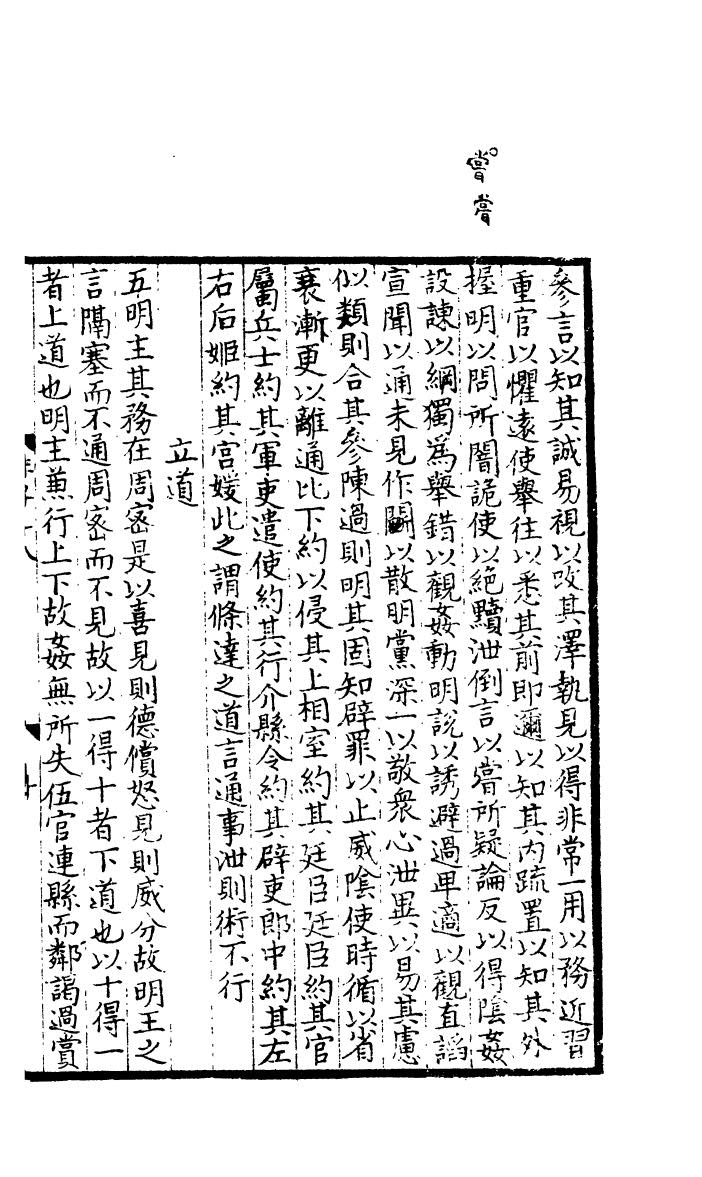 嘗嘗
參言以知其誠易視以改其澤執見以得非常一用以務近習
重官以懼遠使舉往以悉其前即邇以知其內疏置以知其外
握明以問所闇詭使以絕黷泄倒言以嘗所疑論反以得陰姦
設諫以綱獨為舉錯以觀姦動明說以誘避過卑適以觀直諂
宣聞以通未見作鬭以散明黨深一以敬衆心泄異以易其慮
似類則合其參陳過則明其固知辟罪以止威陰使時循以省
衰漸更以離通比下約以侵其上相室約其廷臣廷臣約其官
屬兵士約其軍吏遣使約其行介縣令約其辟吏郎中約其左
右后姬約其宮媛此之謂條達之道言通事泄則術不行
立道
五明主其務在周密是以喜見則德償怒見則威分故明王之
言隔塞而不通周密而不見故以一得十者下道也以十得一
者上道也明主兼行上下故姦無所失伍官連縣而鄰謁過賞